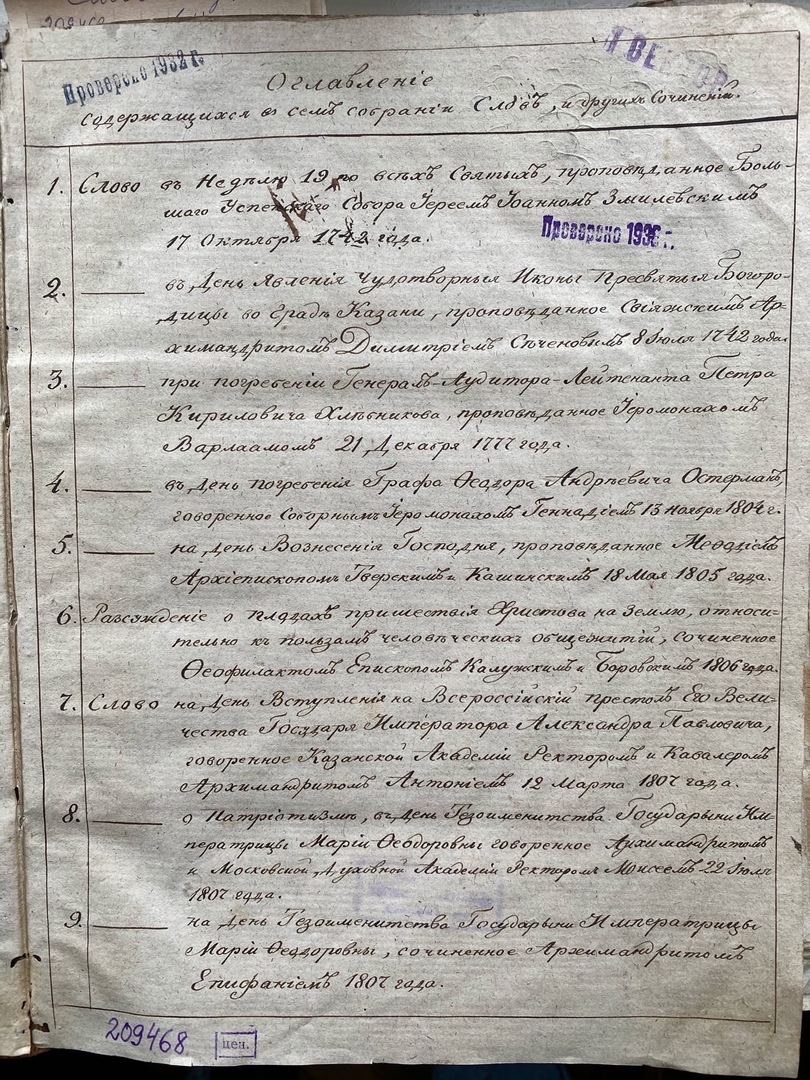 Проверено 1932 г.
Оглавленіе
содержащихся въ семъ собраніи Словъ, и другихъ Сочиненій.
1. Слово въ Недѣлю 19 по всѣхъ Святыхъ, проповѣданное Боль-
шаго Успенскаго Собора Іереемъ Іоанномъ Змилевскимъ
17 Октября 1742 года.
Проверено 1936 г.
2. въ День Явленія Чудотворныя Иконы Пресвятыя Богоро-
дицы во Градѣ Казани, проповѣданное Свіяжскимъ Ар-
химандритомъ Димитріемъ Сѣченовымъ 8 Іюля 1742 года.
3. при погребеніи Генералъ-Аудитора-Лейтенанта Петра
Кириловича Хлѣбникова, проповѣданное Іеромонахомъ
Варлаамомъ 21 Декабря 1777 года.
4. въ День погребенія Графа Ѳеодора Андрѣевича Остермана,
говоренное Соборнымъ Іеромонахомъ Геннадіемъ 13 Ноября 1804 г.
5. на День Вознесенія Господня, проповѣданное Меѳодіемъ
Архіепископомъ Тверскимъ и Кашинскимъ 18 Мая 1805 года.
6. Разсужденіе о плодахъ пришествія Христова на Землю, относи-
тельно къ пользамъ человѣческихъ общежитій, сочиненное
Ѳеофилактомъ Епископомъ Калужскимъ и Боровскимъ 1806 года.
7. Слово на День Вступленія на Всероссійскій престолъ Его Вели-
чества Государя Императора Александра Павловича,
говоренное Казанской Академіи Ректоромъ и Кавалеромъ
Архимандритомъ Антоніемъ 12 Марта 1807 года.
8. о Патріотизмѣ, въ День Тезоименитства Государыни Им-
ператрицы Маріи Ѳеодоровны говоренное Архимандритомъ
и Московской Духовной Академіи Ректоромъ Моисеемъ 22 Іюля
1807 года.
9. на День Тезоименитства Государыни Императрицы
Маріи Ѳеодоровны, сочиненное Архимандритомъ
Епифаніемъ 1807 года.
209468 цен.